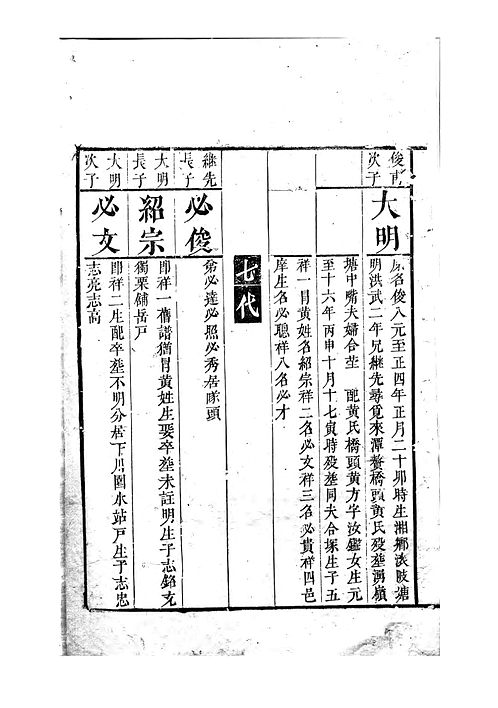 俊甫
次子
大明
原名俊八元至正四年正月二十卯時生湘鄉淡肢塘
明洪武二年兄繼先尋覓來潭贅橋頭黃氏歿塟湧嶺
塘中嘴夫婦合塋 配黃氏橋頭黃方字汝鑑女生元
至十六年丙申十月十七寅時歿塟同夫合塚生子五
祥一冒黃姓名紹宗祥二名必文祥三名必貴祥四邑
庠生名必聰祥八名必才
七代
繼先
長子
必俊
弟必達必照必秀居隊頭
大明
長子
紹宗
即祥一舊譜猶冒黃姓生娶卒塟未註明生子志銘充
獨栗舖岳戸
大明
次子
必文
即祥二生配卒塟不明分居下月園水站戸生子志忠
志亮志高